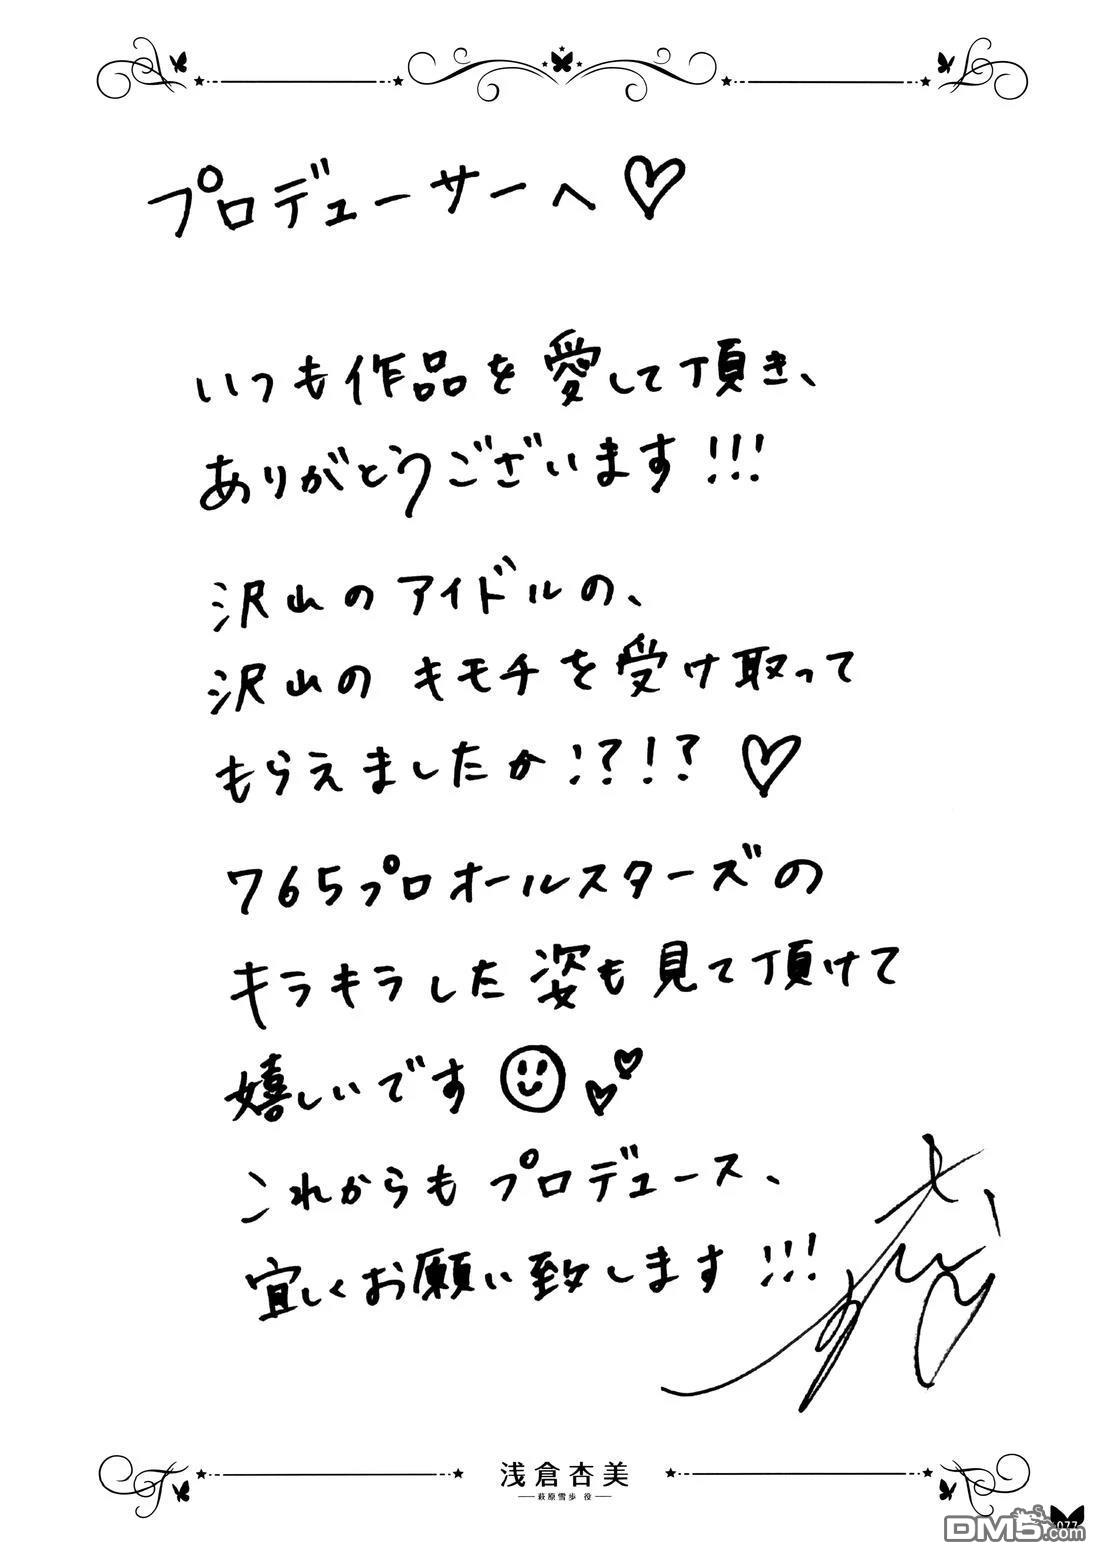 プロデューサーへ♡
いつも作品を愛して頂き、
ありがとうございます!!!
沢山のアイドルの、
沢山のキモチを受け取って
もらえましたか!?!?♡
765プロオールスターズの
キラキラした姿も見て頂けて
嬉しいです
これからもプロデュース、
宜しくお願い致します!!!
浅倉杏美
萩原雪歩 役
077
DM5.com